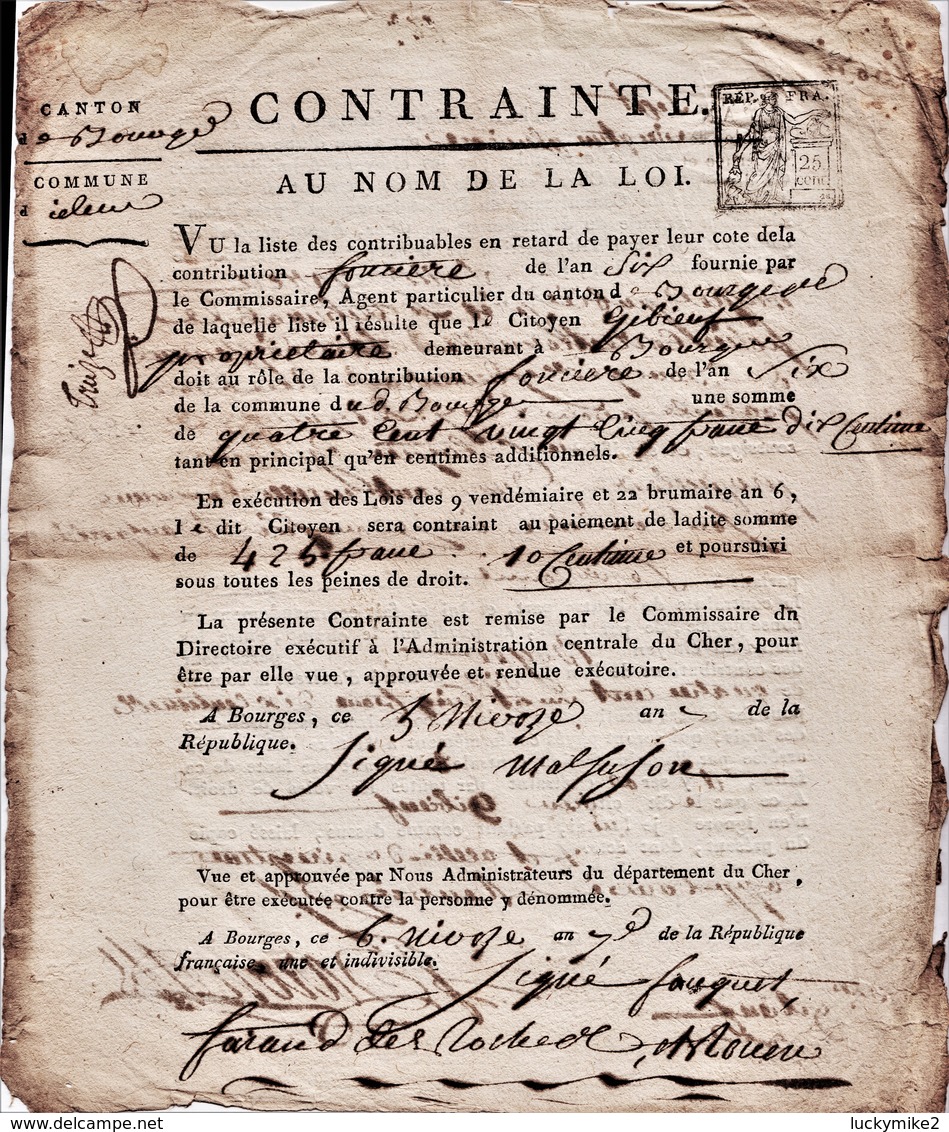 CANTON
de Bourges
COMMUNE
d idem
CONTRAINTE.
RÉP. FRA.
25
cent.
AU NOM DE LA LOI.
VU la liste des contribuables en retard de payer leur cote dela
contribution fonciere de l'an Six fournie par
le Commissaire, Agent particulier du canton de Bourges de
de laquelle liste il résulte que le Citoyen Gibieuf
proprietaire demeurant à Bourges
doit au rôle de la contribution fonciere de l'an Six
de la commune dud. Bourges une somme
de quatre Cent vingt Cinq franc dix Centime
tant en principal qu'en centimes additionnels.
En exécution des Lois des 9 vendémiaire et 22 brumaire an 6,
le dit Citoyen sera contraint au paiement de ladite somme
de 425 franc 10 Centime et poursuivi
sous toutes les peines de droit.
La présente Contrainte est remise par le Commissaire dn
Directoire exécutif à l'Administration centrale du Cher, pour
être par elle vue, approuvée et rendue exécutoire.
A Bourges, ce 5 Nivose an 7 de la
République.
Signé
Vue et approuvée par Nous Administrateurs du département du Cher,
pour être exécutée contre la personne y dénommée.
A Bourges, ce 6. nivose an 7e de la République
française, une et indivisible.
Signé fouquet
delcampe.net
luckymike2